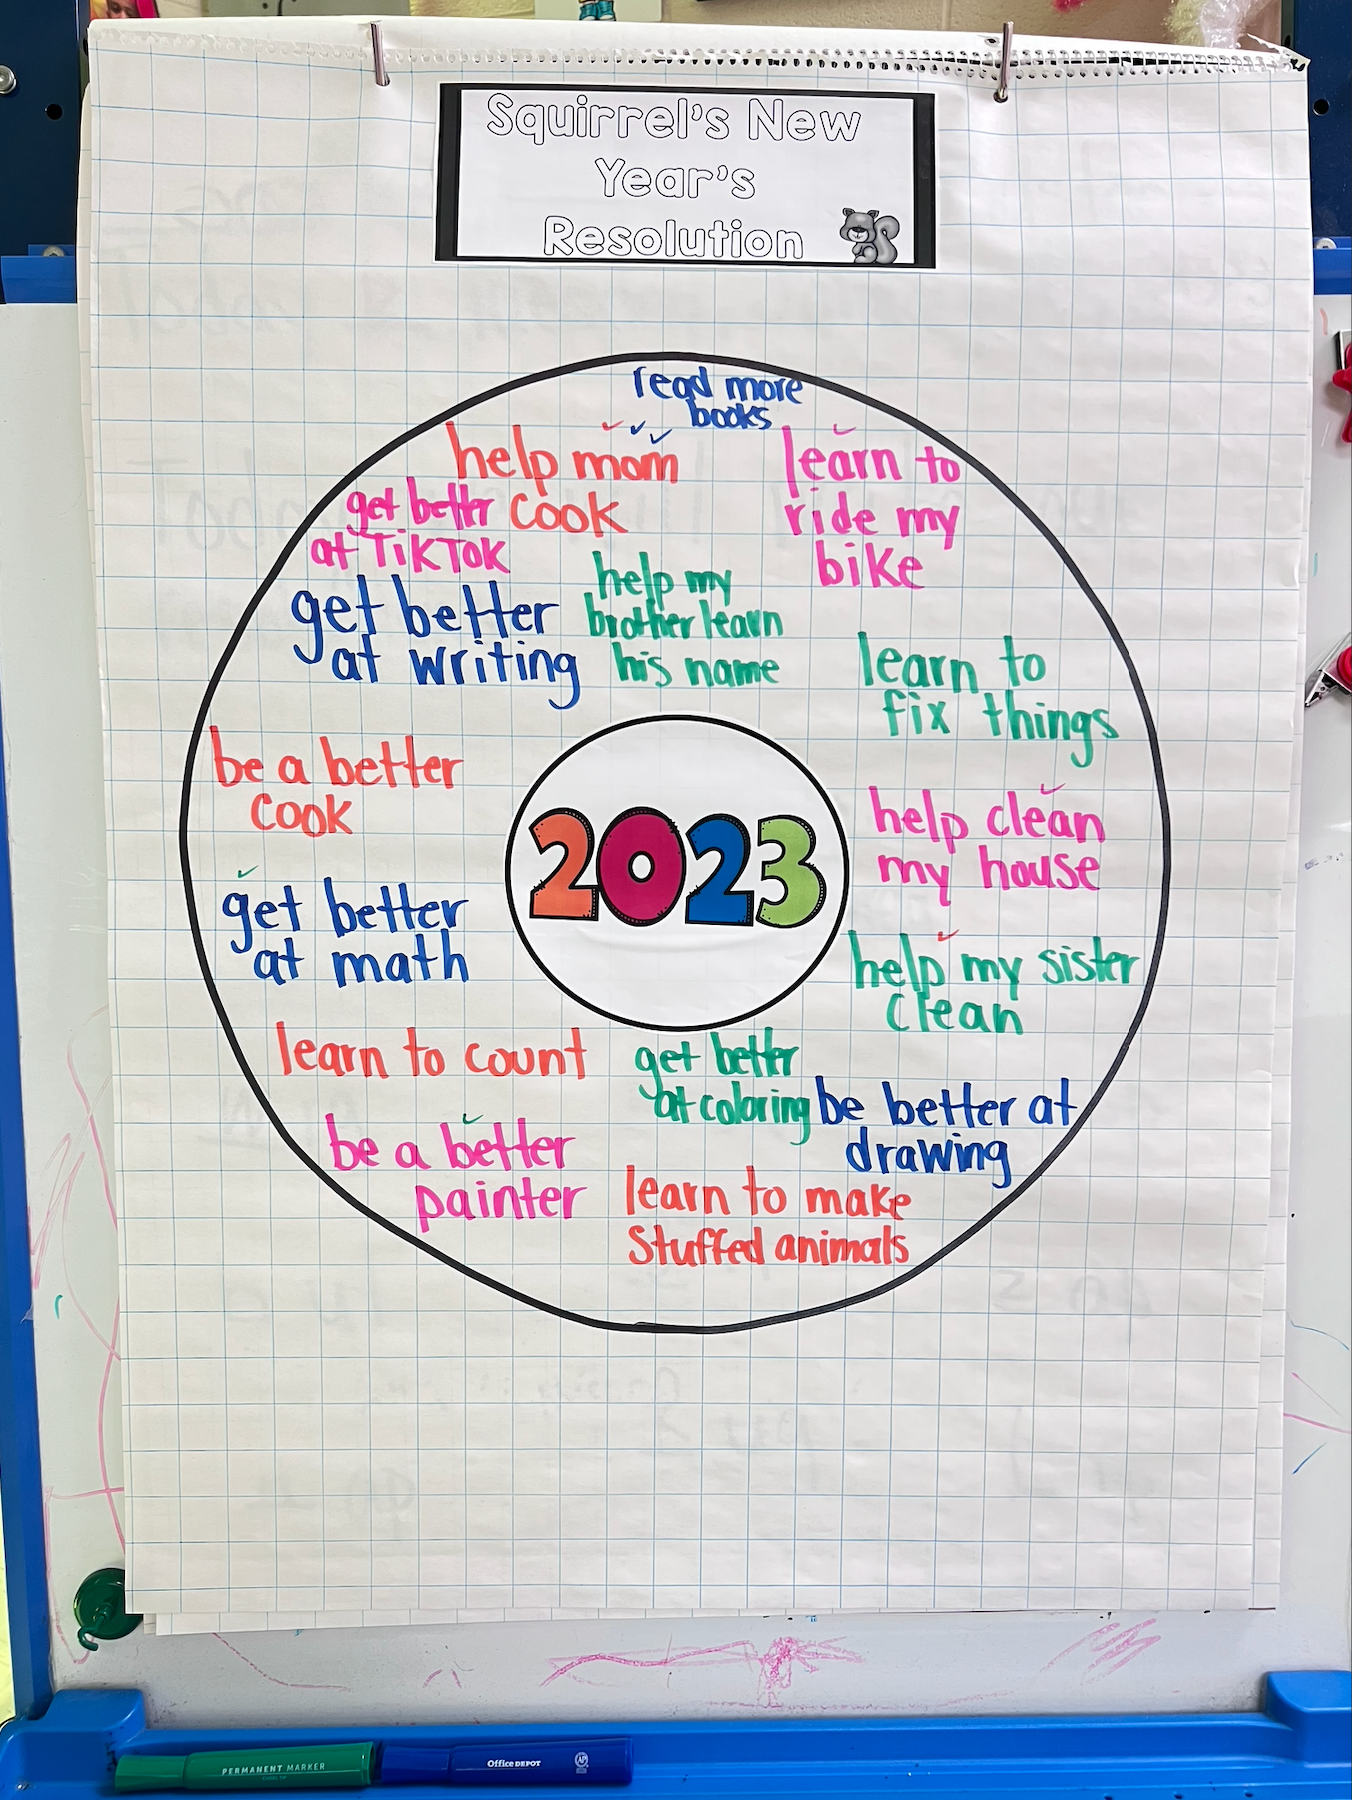 Squirrel's New
Year's
Resolution
read more
books
help mom
cook
learn to
ride my
bike
get better
at TikTok
help my
brother learn
his name
get better
at writing
learn to
fix things
be a better
cook
2023
help clean
my house
get better
at math
help my sister
clean
learn to count
get better
at coloring
be better at
drawing
be a better
painter
learn to make
Stuffed animals
PERMANENT MARKER
Office DEPOT
AP